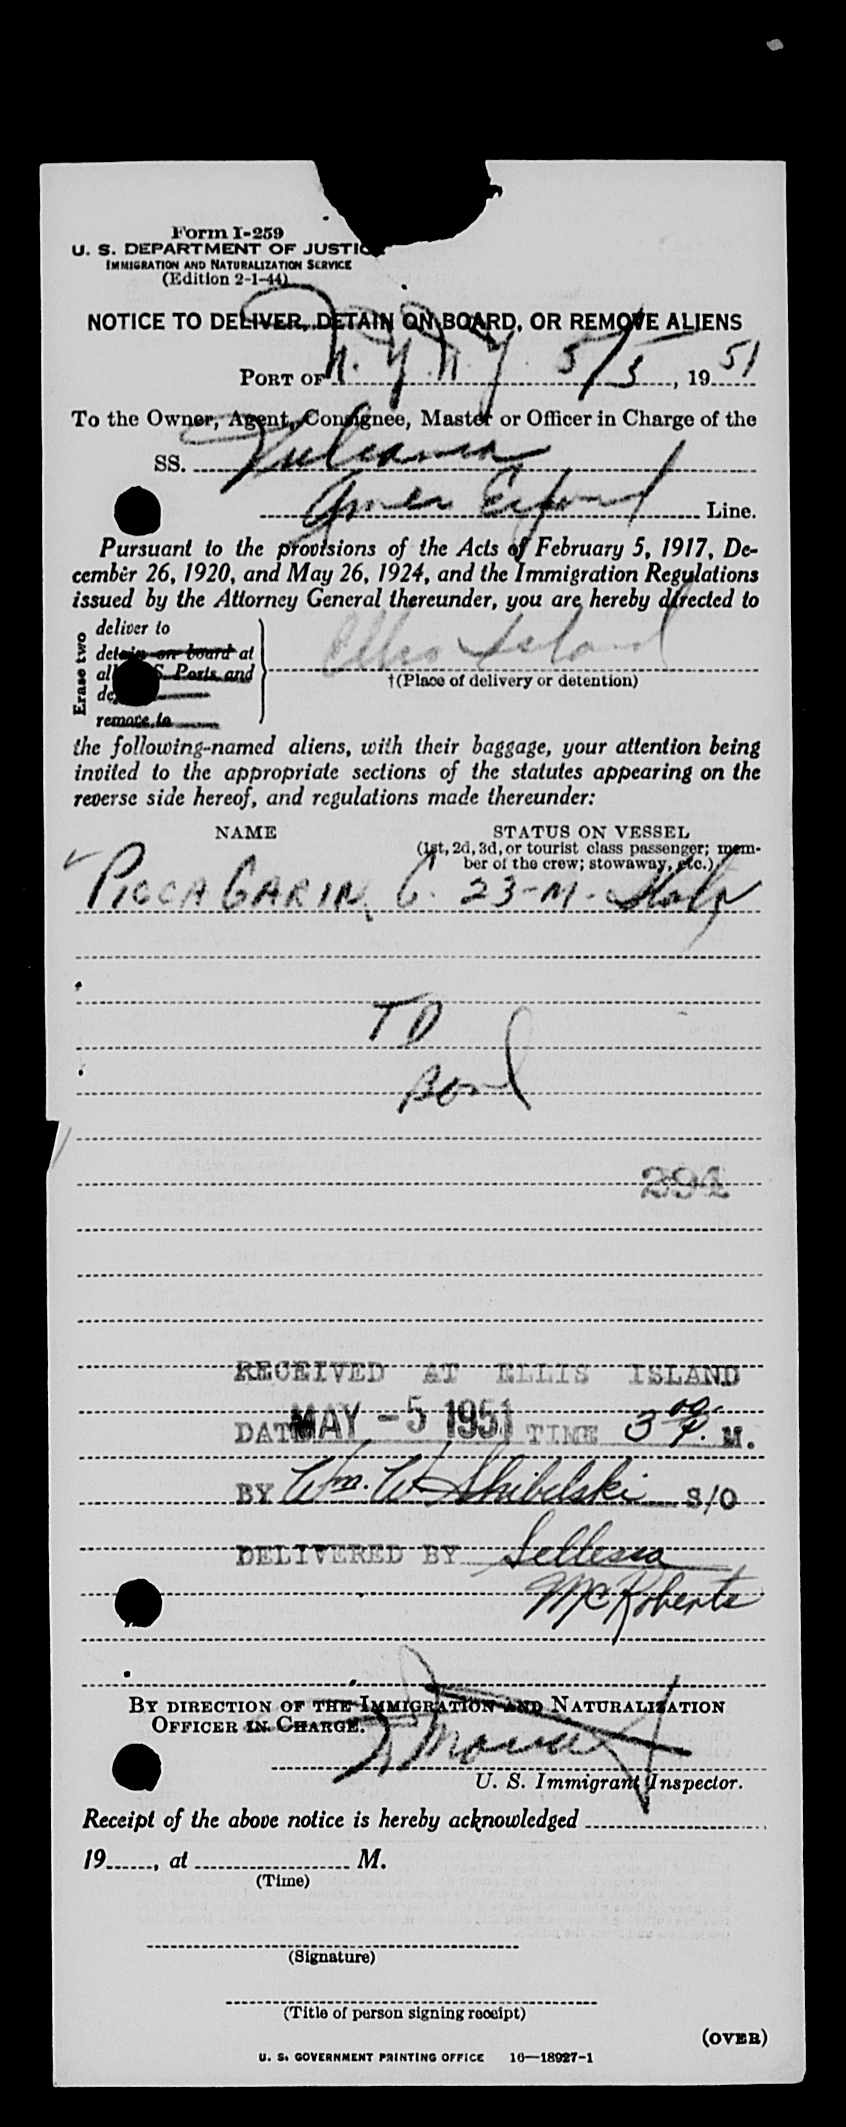 Form I-259
U. S. DEPARTMENT OF JUSTICE
IMMIGRATION AND NATURALIZATION SERVICE
(Edition 2-1-44)
NOTICE TO DELIVER, DETAIN ON BOARD, OR REMOVE ALIENS
PORT OF N.Y.N.Y. 5/5, 1951
To the Owner, Agent, Consignee, Master or Officer in Charge of the
SS. Vulcania
Amer Export Line.
Pursuant to the provisions of the Acts of February 5, 1917, De-
cember 26, 1920, and May 26, 1924, and the Immigration Regulations
issued by the Attorney General thereunder, you are hereby directed to
Erase two
deliver to
detain on board at
all S. Ports and
remove to
Ellis Island
†(Place of delivery or detention)
the following-named aliens, with their baggage, your attention being
invited to the appropriate sections of the statutes appearing on the
reverse side hereof, and regulations made thereunder:
NAME STATUS ON VESSEL
(1st, 2d, 3d, or tourist class passenger; mem-
ber of the crew; stowaway, etc.)
PICCAGARIN, G. 23-M-
TD
Bond
294
RECEIVED AT ELLIS ISLAND
DATE MAY - 5 1951 TIME 3 00 P. M.
BY Wm. W. Shibelski S/O
DELIVERED BY
McRoberts
BY DIRECTION OF THE IMMIGRATION AND NATURALIZATION
OFFICER IN CHARGE.
U. S. Immigrant Inspector.
Receipt of the above notice is hereby acknowledged
19......, at M.
(Time)
(Signature)
(Title of person signing receipt)
(OVER)
U. S. GOVERNMENT PRINTING OFFICE 16—18927-1